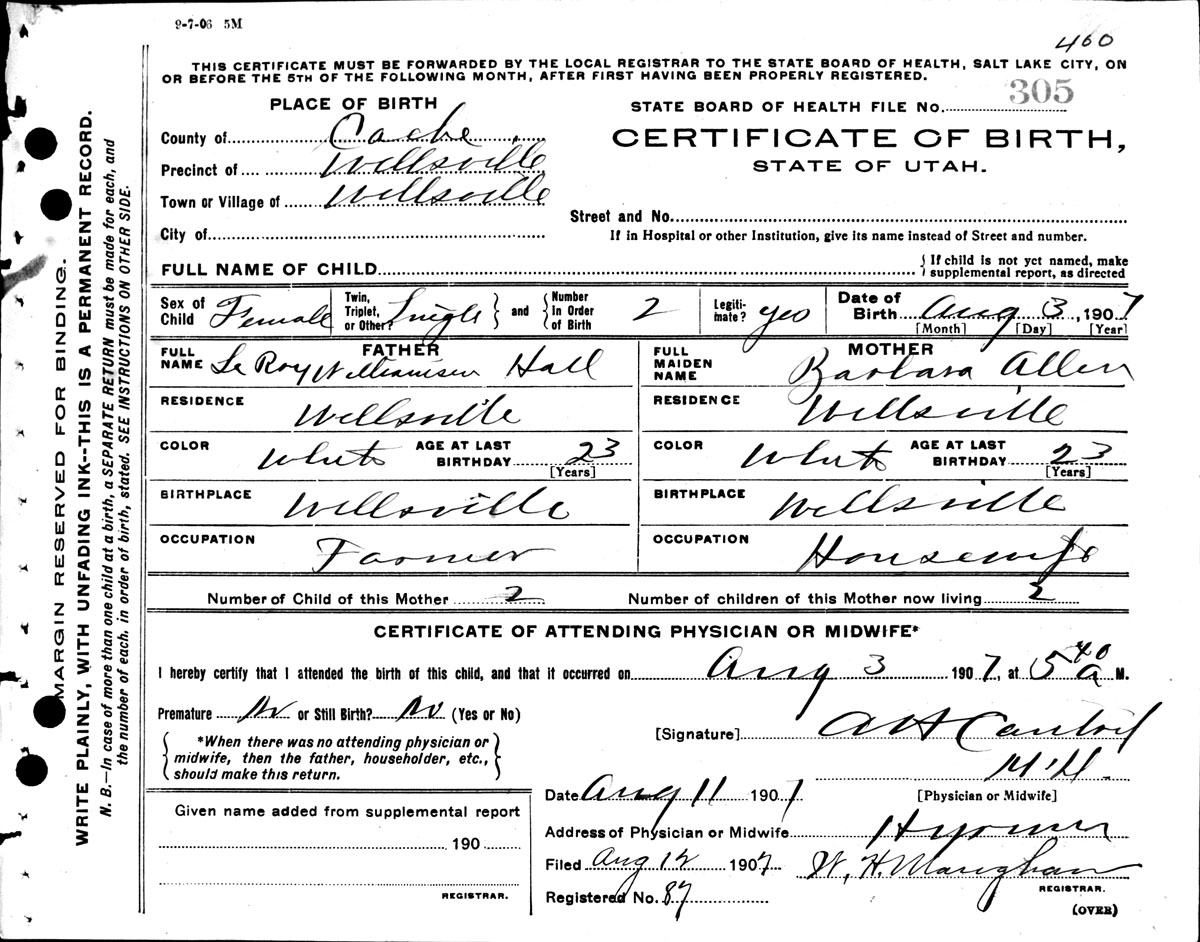 9-7-06 5M
460
THIS CERTIFICATE MUST BE FORWARDED BY THE LOCAL REGISTRAR TO THE STATE BOARD OF HEALTH, SALT LAKE CITY, ON
OR BEFORE THE 5TH OF THE FOLLOWING MONTH, AFTER FIRST HAVING BEEN PROPERLY REGISTERED.
PLACE OF BIRTH
STATE BOARD OF HEALTH FILE No. 305
County of Cache
CERTIFICATE OF BIRTH,
Precinct of Wellsville
STATE OF UTAH.
Town or Village of Wellsville
Street and No.
City of
If in Hospital or other Institution, give its name instead of Street and number.
FULL NAME OF CHILD
{ If child is not yet named, make
supplemental report, as directed
Sex of Child Female
Twin, Triplet, or Other? Single } and { Number In Order of Birth 2
Legitimate? yes
Date of Birth Aug 3, 1907
[Month] [Day] [Year]
FATHER
FULL NAME Le Roy Williamsen Hall
MOTHER
FULL MAIDEN NAME Barbara Allen
RESIDENCE Wellsville
RESIDENCE Wellsville
COLOR White AGE AT LAST BIRTHDAY 23 [Years]
COLOR White AGE AT LAST BIRTHDAY 23 [Years]
BIRTHPLACE Wellsville
BIRTHPLACE Wellsville
OCCUPATION Farmer
OCCUPATION Housewife
Number of Child of this Mother 2
Number of children of this Mother now living 2
CERTIFICATE OF ATTENDING PHYSICIAN OR MIDWIFE*
I hereby certify that I attended the birth of this child, and that it occurred on Aug 3 1907, at 5 40 a M.
Premature No or Still Birth? No (Yes or No)
[Signature] A H
{ *When there was no attending physician or
midwife, then the father, householder, etc.,
should make this return. }
Date Aug 11 1907
[Physician or Midwife]
Given name added from supplemental report
190
REGISTRAR.
Address of Physician or Midwife Hyrum
Filed Aug 12 1907 W. H. Maughan
REGISTRAR.
Registered No. 87
(OVER)
MARGIN RESERVED FOR BINDING.
WRITE PLAINLY, WITH UNFADING INK--THIS IS A PERMANENT RECORD.
N. B.—In case of more than one child at a birth, a SEPARATE RETURN must be made for each, and
the number of each, in order of birth, stated. SEE INSTRUCTIONS ON OTHER SIDE.